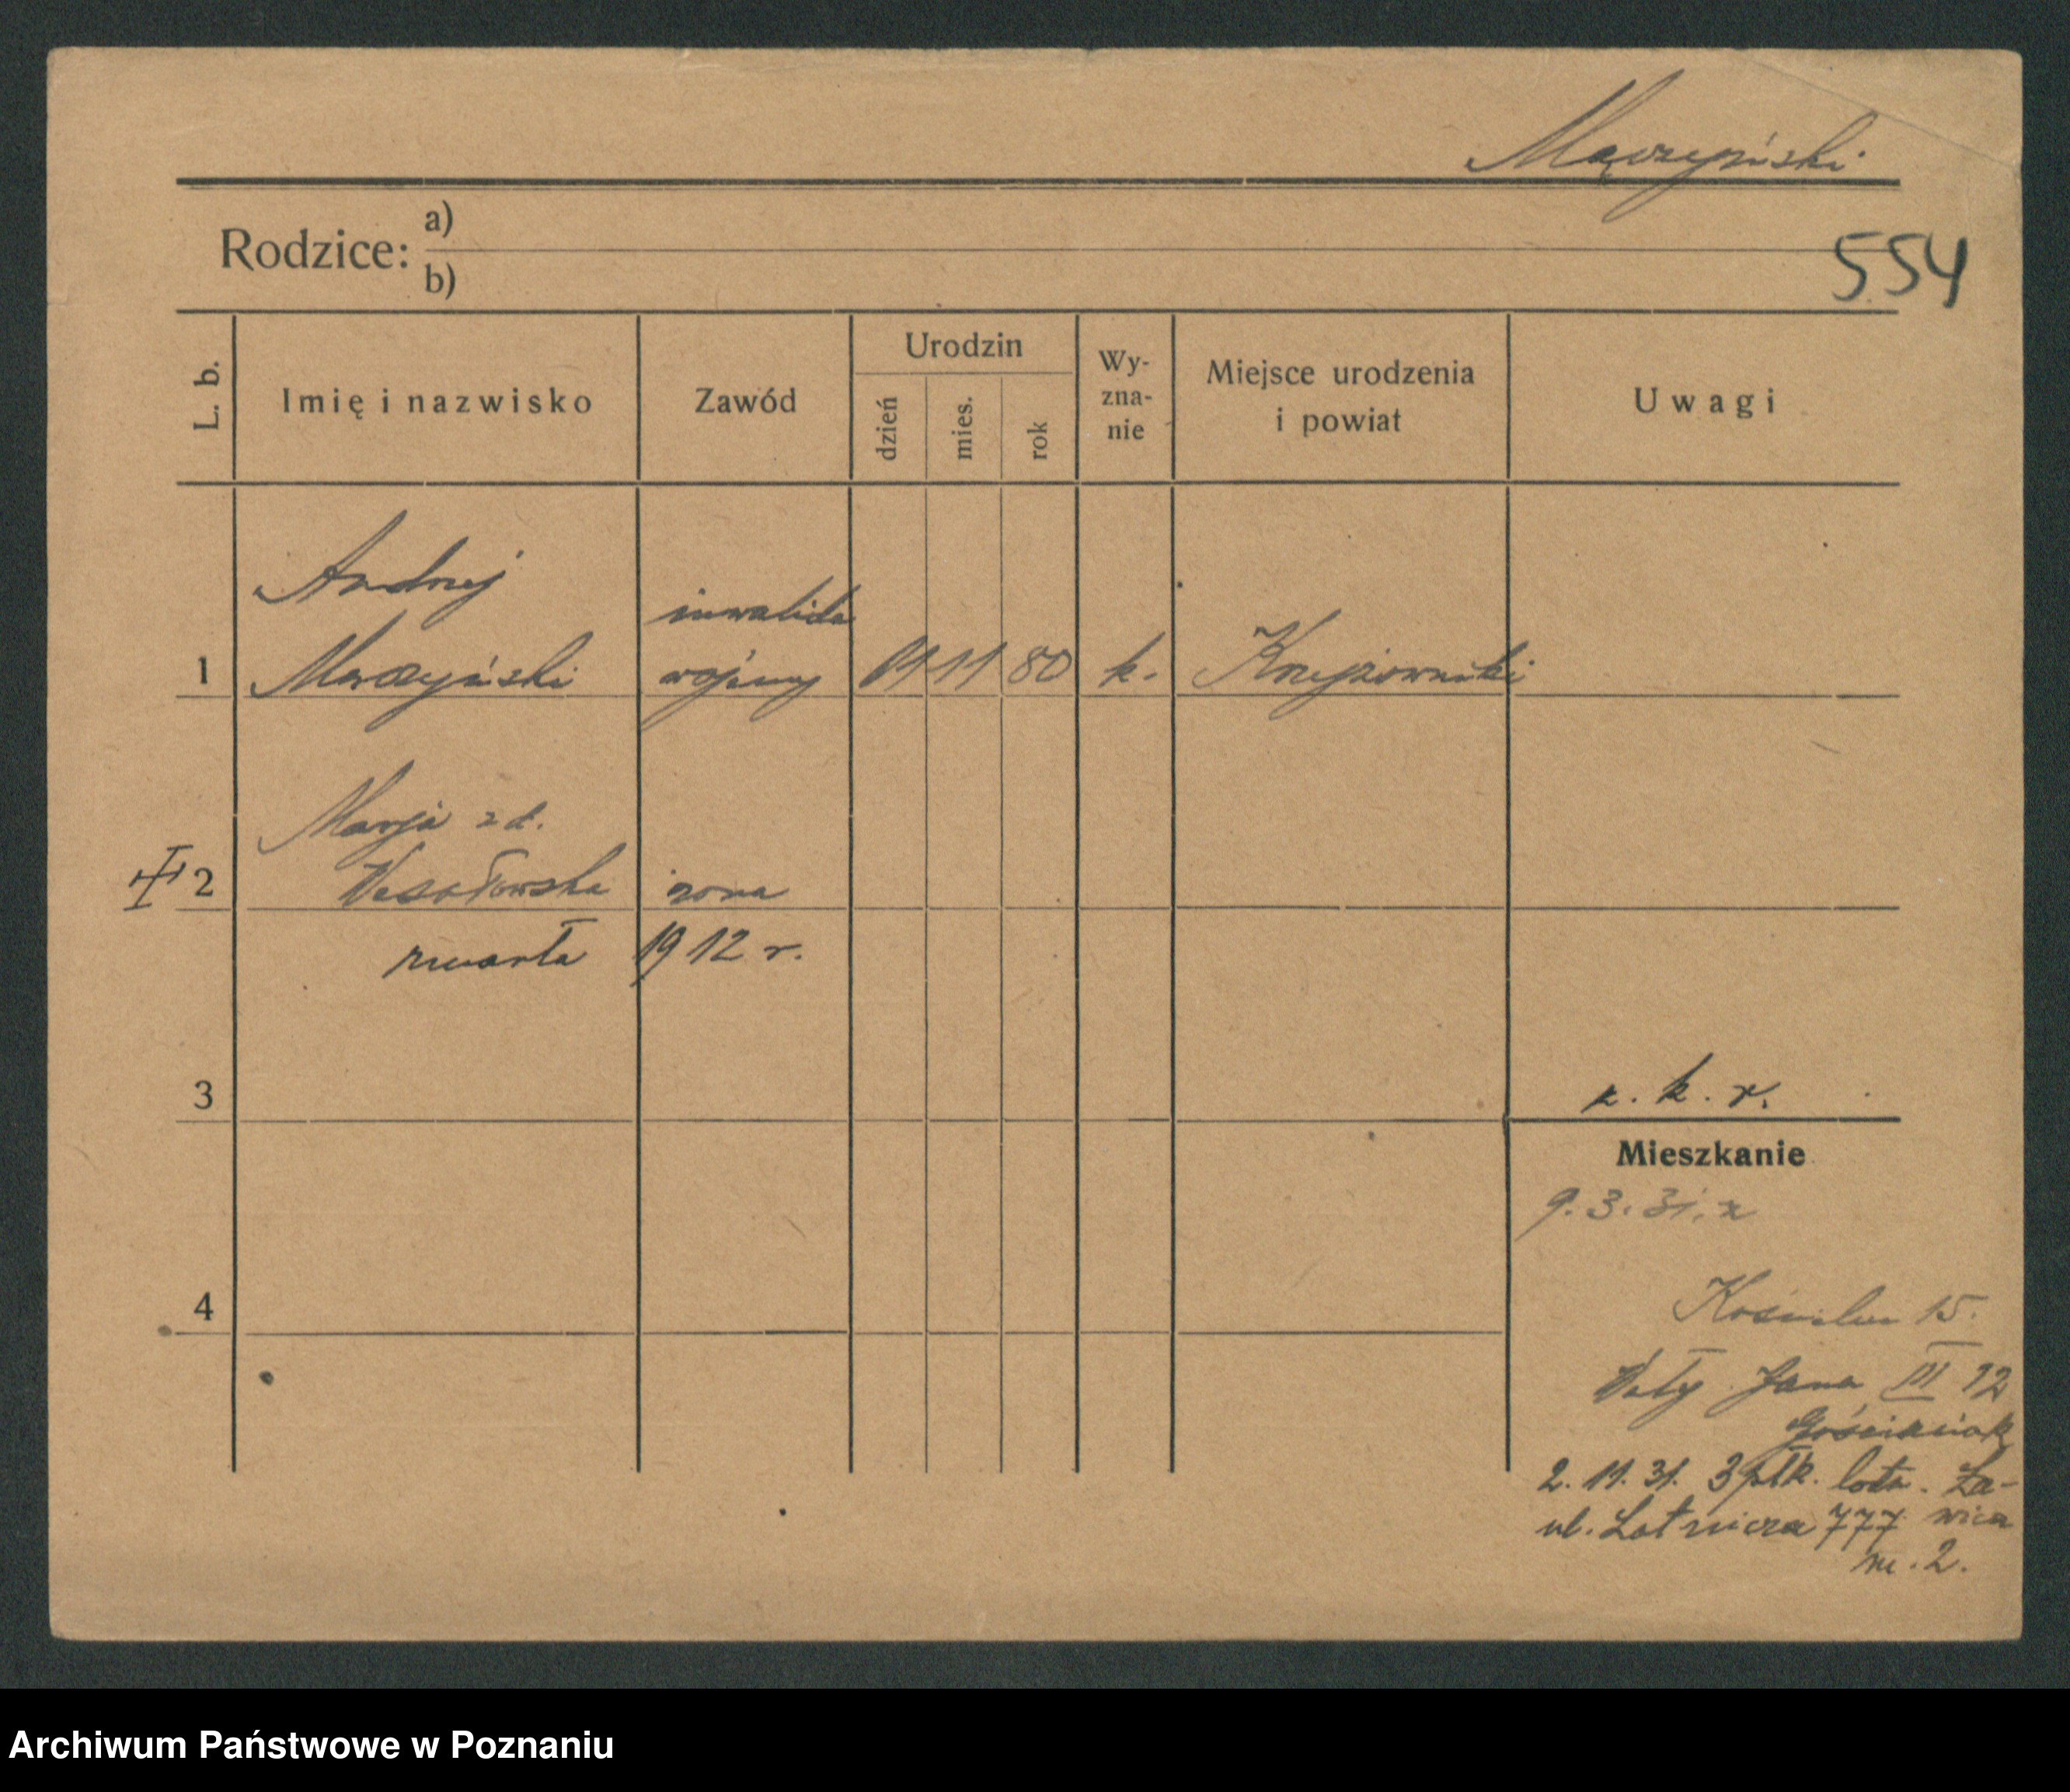 Mączyński
Rodzice: a)
b)
554
L. b.
Imię i nazwisko
Zawód
Urodzin
dzień
mies.
rok
Wy-
zna-
nie
Miejsce urodzenia
i powiat
Uwagi
Andrzej
inwalida
1 Mączyński wojenny 11 11 80 k. Krzyżowniki
Marja zd.
2 Wesołowska żona
zmarła 1912 r.
3
k. r.
Mieszkanie
9. 3. 31.
4
15.
Wały Jana III 12
2. 11. 31. 3 płk. lotn. Ła-
ul. Lotnicza 777 wica
m. 2.
Archiwum Państwowe w Poznaniu